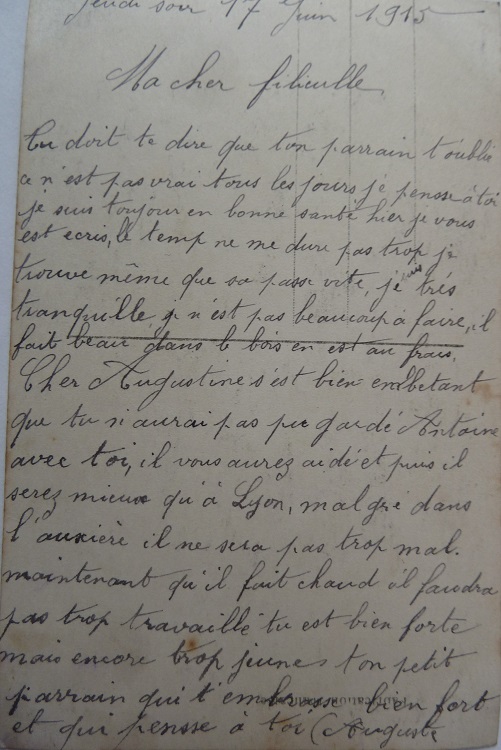 Jeudi soir 17 Juin 1915
Ma cher filieulle
Tu doit te dire que ton parrain t'oublie
ce n'est pas vrai tous les jours je pensse à toi
je suis toujour en bonne santé hier je vous
est ecris, le temp ne me dure pas trop je
trouve même que sa passe vite, je suis trés
tranquille, je n'est pas beaucoup à faire, il
fait beau dans le bois en est au frais,
Cher Augustine s'est bien embetant
que tu n'aurai pas pu gardé Antoine
avec toi, il vous aurez aidé et puis il
serez mieux qu'à Lyon, malgré dans
l'auxière il ne sera pas trop mal.
maintenant qu'il fait chaud il faudra
pas trop travaillé tu est bien forte
mais encore trop jeune ton petit
parrain qui t'embrasse bien fort
et qui pensse à toi (Auguste